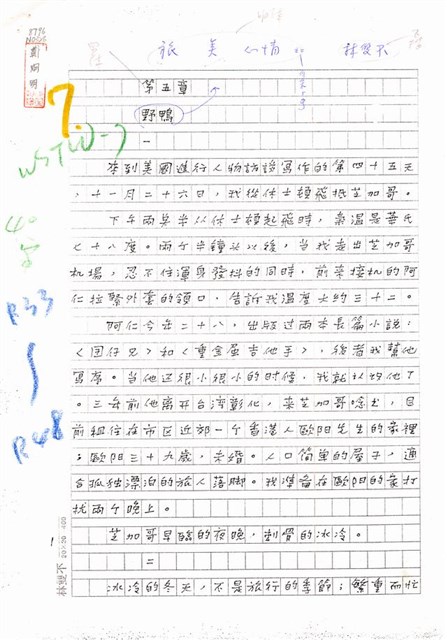 旅美心情 林雙不
第五章
野鴨
一
來到美國進行人物訪談寫作的第四十五天
，十一月二十六日，我從休士頓飛抵芝加哥。
下午兩點半從休士頓起飛時，氣溫是華氏
八十八度。兩個半鐘頭以後，當我走出芝加哥
機場，忍不住渾身發抖的同時，前來接機的阿
仁拉緊外套的領口，告訴我溫度大約三十二。
阿仁今年二十八，出版過兩本長篇小說：
，後者我替他
寫序。當他還很小很小的時候，我就認識他了
。三年前他離開台灣，來芝加哥念書，目
前租住在市區近郊一個香港人歐陽先生的家裡
。歐陽三十九歲，未婚。人口簡單的房子，適
合孤獨漂泊的旅人落腳。我準備在歐陽的家打
擾兩個晚上。
芝加哥昏暗的夜晚，刺骨的冰冷。
二
冰冷的冬天，不是旅行的季節；
7.
WSTW-7
40
字
R33
R48
林雙不 20×20=400